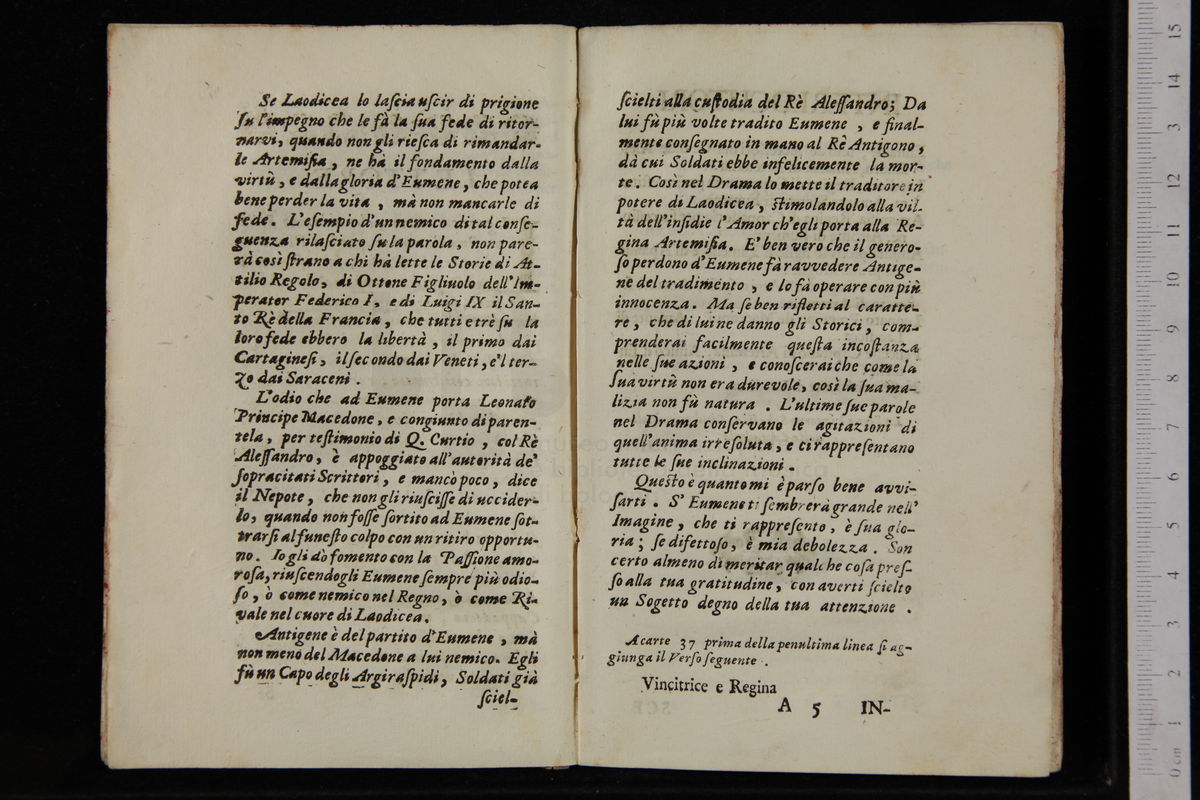 Se Laodicea lo laſcia uſcir di prigione
ſu l'impegno che le fà la ſua fede di ritor-
narvi, quando non gli rieſca di rimandar-
le Artemiſia, ne hà il fondamento dalla
virtù, e dalla gloria d'Eumene, che potea
bene perder la vita, mà non mancarle di
fede. L'eſempio d'un nemico di tal conſe-
guenza rilaſciato ſu la parola, non pare-
rà così ſtrano a chi hà lette le Storie di At-
tilio Regolo, di Ottone Figliuolo dell'Im-
perator Federico I, e di Luigi IX il San-
to Rè della Francia, che tutti e trè ſu la
loro fede ebbero la libertà, il primo dai
Cartagineſi, il ſecondo dai Veneti, e'l ter-
zo dai Saraceni.
L'odio che ad Eumene porta Leonato
Principe Macedone, e congiunto di paren-
tela, per teſtimonio di Q. Curtio, col Rè
Aleſſandro, è appoggiato all'autorità de'
ſopracitati Scrittori, e mancò poco, dice
il Nepote, che non gli riuſciſſe di uccider-
lo, quando non foſſe ſortito ad Eumene ſot-
trarſi al funeſto colpo con un ritiro opportu-
no. Io gli dò fomento con la Paſſione amo-
roſa, riuſcendogli Eumene ſempre più odio-
ſo, ò come nemico nel Regno, ò come Ri-
vale nel cuore di Laodicea.
Antigene è del partito d'Eumene, mà
non meno del Macedone a lui nemico. Egli
fù un Capo degli Argiraſpidi, Soldati già
ſciel-
ſcielti alla cuſtodia del Rè Aleſſandro; Da
lui fù più volte tradito Eumene, e final-
mente conſegnato in mano al Rè Antigono,
dà cui Soldati ebbe infelicemente la mor-
te. Così nel Drama lo mette il traditore in
potere di Laodicea, ſtimolandolo alla vil-
tà dell'inſidie l'Amor ch'egli porta alla Re-
gina Artemiſia. E' ben vero che il genero-
ſo perdono d'Eumene fà ravvedere Antige-
ne del tradimento, e lo fà operare con più
innocenza. Ma ſe ben rifletti al caratte-
re, che di lui ne danno gli Storici, com-
prenderai facilmente queſta incoſtanza
nelle ſue azioni, e conoſcerai che come la
ſua virtù non era durevole, così la ſua ma-
lizia non fù natura. L'ultime ſue parole
nel Drama conſervano le agitazioni di
quell'anima irreſoluta, e ci rappreſentano
tutte le ſue inclinazioni.
Queſto è quanto mi è parſo bene avvi-
ſarti. S' Eumene ti ſembrerà grande nell'
Imagine, che ti rappreſento, è ſua glo-
ria; ſe difettoſo, è mia debolezza. Son
certo almeno di meritar qualche coſa preſ-
ſo alla tua gratitudine, con averti ſcielto
un Sogetto degno della tua attenzione.
A carte 37 prima della penultima linea ſi ag-
giunga il Verſo ſeguente.
Vincitrice e Regina
A 5 IN-